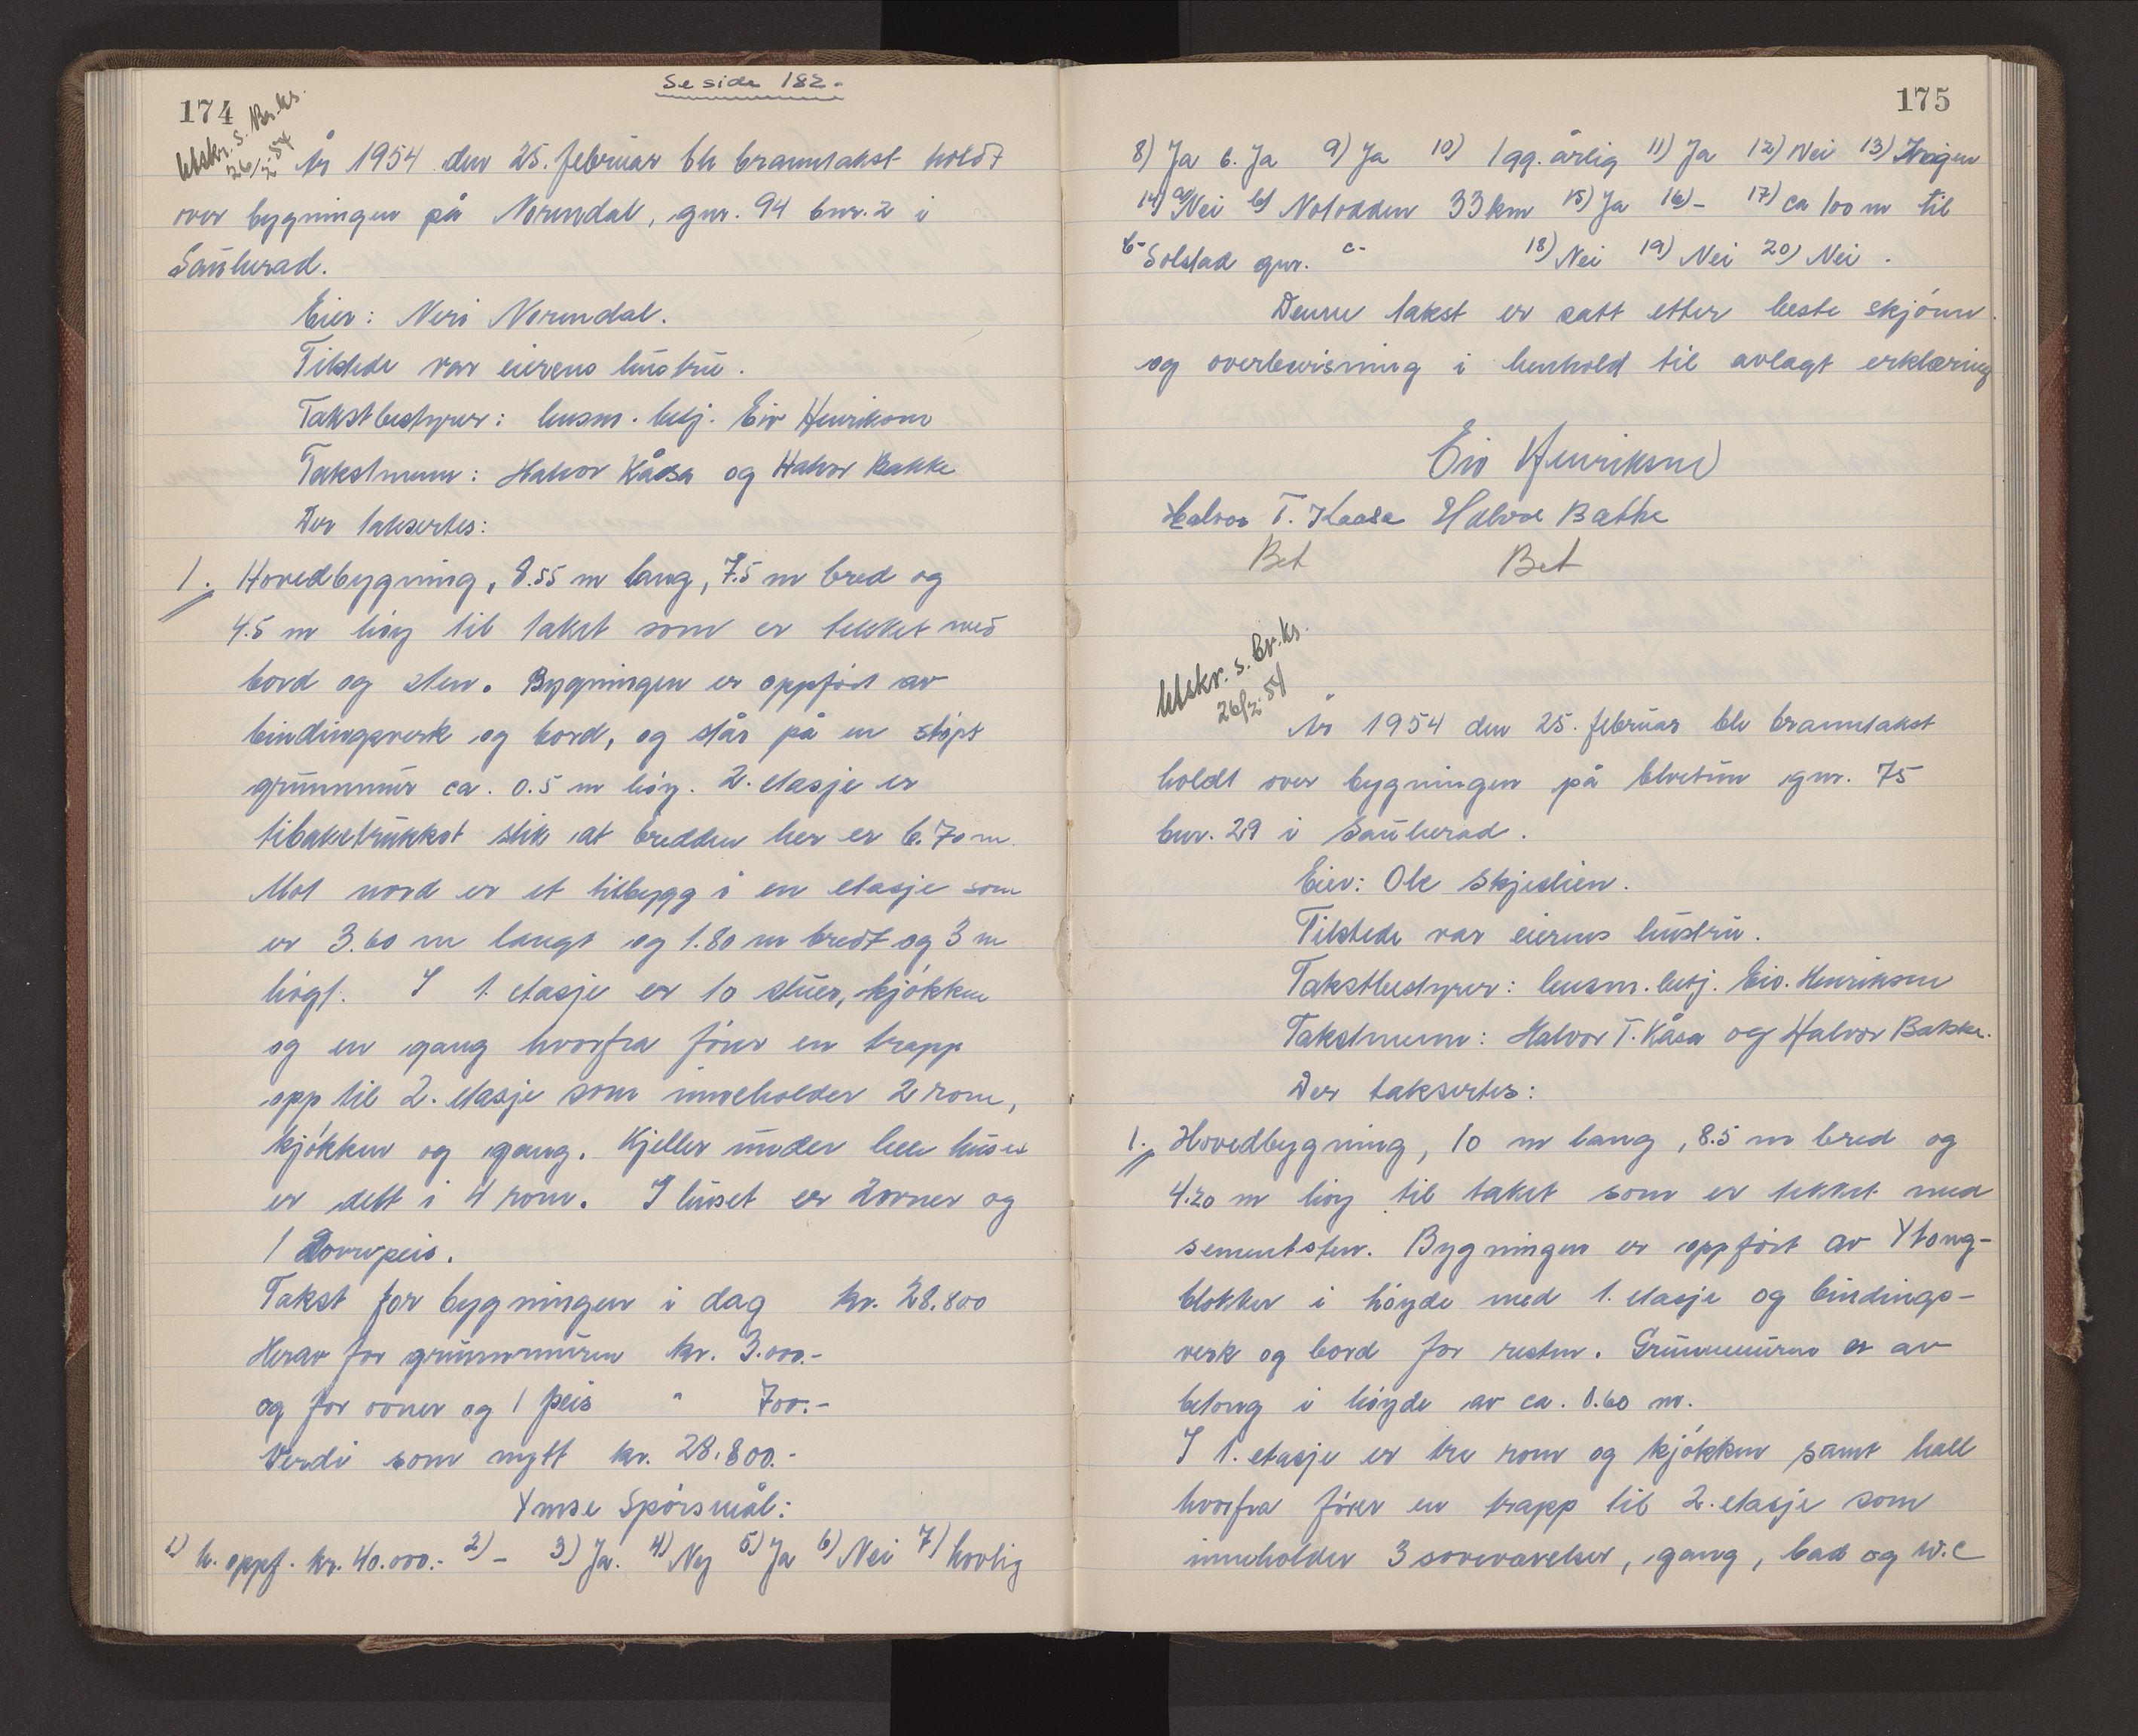 Se side 182.
174
Utskr. s. Br.ks.
26/2.54
År 1954 den 25. februar ble branntakst holdt
over bygningen på Norendal, gnr. 94 bnr. 2 i
Sauherad.
Eier: Neri Norendal.
Tilstede var eierens hustru.
Takstbestyrer: lensm. betj. Eiv Henriksen
Takstmenn: Halvor Kåsa og Halvor Bakke
Der taksertes:
1. Hovedbygning, 8.55 m lang, 7.5 m bred og
4.5 m høy til taket som er tekket med
bord og sten. Bygningen er oppført av
bindingsverk og bord, og står på en støpt
grunnmur ca. 0.5 m høy. 2. etasje er
tilbaketrukket slik at bredden her er 6.70 m.
Mot nord er et tilbygg i en etasje som
er 3.60 m langt og 1.80 m bredt og 3 m
høgt. I 1. etasje er to stuer, kjøkken
og en gang hvorfra fører en trapp
opp til 2. etasje som inneholder 2 rom,
kjøkken og gang. Kjeller under hele huset
er delt i 4 rom. I huset er 2 ovner og
1 peis.
Takst for bygningen i dag kr. 28.800
Herav for grunnmuren kr. 3.000.-
og for ovner og 1 peis " 700.-
Verdi som nytt kr. 28.800.-
Ymse Spørsmål:
1) h. oppf. kr. 40.000.- 2) - 3) Ja. 4) Ny 5) Ja 6) Nei 7) hovlig
175
8) Ja b. Ja 9) Ja 10) 1 gg. årlig 11) Ja 12) Nei 13) Ingen
14) a) Nei b) Notodden 33 km 15) Ja 16) - 17) ca 100 m til
b- Solstad gnr. c- 18) Nei 19) Nei 20) Nei.
Denne takst er satt etter beste skjønn
og overbevisning i henhold til avlagt erklæring
Eiv Henriksen
Halvor T. Kaasa Halvor Bakke
Bet Bet
Utskr. s. Br.ks.
26/2.54
År 1954 den 25. februar ble branntakst
holdt over bygningen på Elvetun gnr. 75
bnr. 29 i Sauherad.
Eier: Ole Skjelien.
Tilstede var eierens hustru.
Takstbestyrer: lensm. betj. Eiv. Henriksen
Takstmenn: Halvor T. Kåsa og Halvor Bakke.
Der taksertes:
1. Hovedbygning, 10 m lang, 8.5 m bred og
4.20 m høy til taket som er tekket med
sementsten. Bygningen er oppført av Ytong-
blokker i høyde med 1. etasje og bindings-
verk og bord for resten. Grunnmuren er av
betong i høyde av ca. 0.60 m.
I 1. etasje er tre rom og kjøkken samt hall
hvorfra fører en trapp til 2. etasje som
inneholder 3 soveværelser, gang, bad og W.C